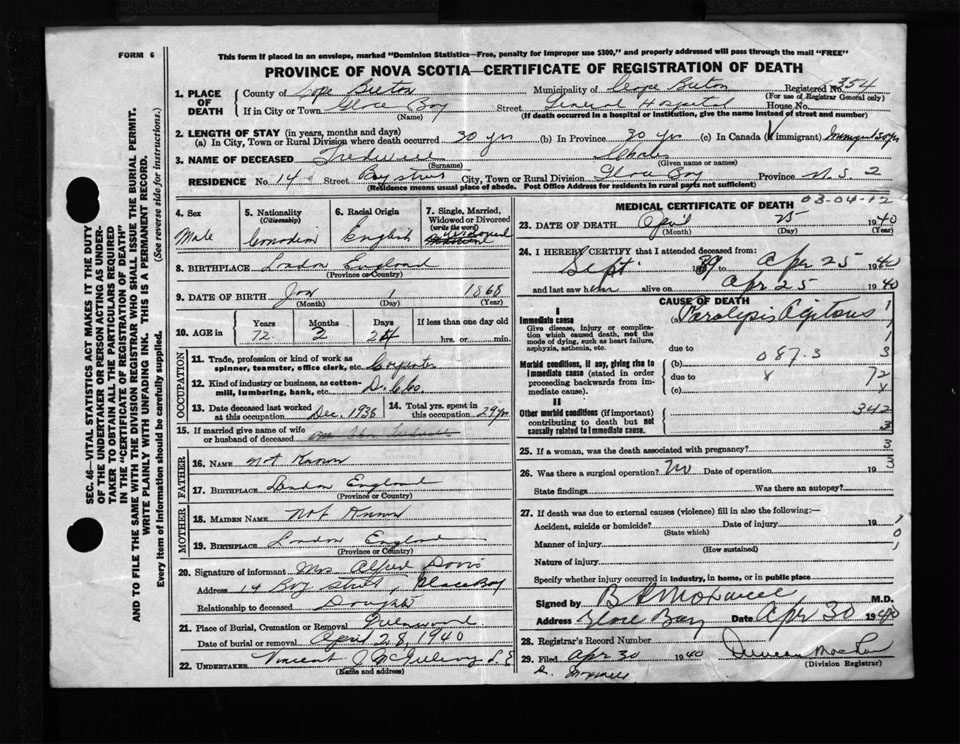 FORM 6
This form if placed in an envelope, marked "Dominion Statistics—Free, penalty for improper use $300," and properly addressed will pass through the mail "FREE"
PROVINCE OF NOVA SCOTIA—CERTIFICATE OF REGISTRATION OF DEATH
1. PLACE OF DEATH County of Cape Breton Municipality of Cape Breton Registered No. 354
(For use of Registrar General only)
If in City or Town Glace Bay (Name) Street General Hospital House No.
(If death occurred in a hospital or institution, give the name instead of street and number)
2. LENGTH OF STAY (in years, months and days)
(a) In City, Town or Rural Division where death occurred 30 yrs (b) In Province 30 yr (c) In Canada (if immigrant)
3. NAME OF DECEASED (Surname) Charles (Given name or names)
RESIDENCE No. 14 Street Bay street City, Town or Rural Division Glace Bay Province N. S. 2
(Residence means usual place of abode. Post Office Address for residents in rural parts not sufficient)
4. Sex Male
5. Nationality (Citizenship) Canadian
6. Racial Origin English
7. Single, Married, Widowed or Divorced (write the word) Widowed
8. BIRTHPLACE London England
(Province or Country)
9. DATE OF BIRTH Jan (Month) 1 (Day) 1868 (Year)
10. AGE in Years 72 Months 3 Days 24 If less than one day old hrs. or min.
OCCUPATION
11. Trade, profession or kind of work as spinner, teamster, office clerk, etc. Carpenter
12. Kind of industry or business, as cotton-mill, lumbering, bank, etc.
13. Date deceased last worked at this occupation Dec. 1938
14. Total yrs. spent in this occupation 29 yrs
15. If married give name of wife or husband of deceased
FATHER
16. NAME Not Known
17. BIRTHPLACE London England
(Province or Country)
MOTHER
18. MAIDEN NAME Not Known
19. BIRTHPLACE London England
(Province or Country)
20. Signature of informant Mrs Alfred Davis
Address 14 Bay street, Glace Bay
Relationship to deceased Daughter
21. Place of Burial, Cremation or Removal Greenwood
Date of burial or removal April 28, 1940
22. UNDERTAKER Vincent
(Name and address)
MEDICAL CERTIFICATE OF DEATH
03-04-12
23. DATE OF DEATH April (Month) 25 (Day) 1940 (Year)
24. I HEREBY CERTIFY that I attended deceased from:
Sept. 1939 to Apr 25 1940
and last saw him alive on Apr 25 1940
CAUSE OF DEATH
I
Immediate cause (a) Paralysis Agitans
Give disease, injury or complication which caused death, not the mode of dying, such as heart failure, asphyxia, asthenia, etc.
due to
Morbid conditions, if any, giving rise to immediate cause (stated in order proceeding backwards from immediate cause).
(b) 087.3
due to
(c)
II
Other morbid conditions (if important) contributing to death but not causally related to immediate cause.
1
1
3
72
x
342
3
25. If a woman, was the death associated with pregnancy? 3
26. Was there a surgical operation? No Date of operation 193
State findings Was there an autopsy?
27. If death was due to external causes (violence) fill in also the following:—
Accident, suicide or homicide? (State which) Date of injury 19
Manner of injury (How sustained)
Nature of injury
Specify whether injury occurred in industry, in home, or in public place
Signed by M.D.
Address Glace Bay Date Apr 30 1940
28. Registrar's Record Number
29. Filed Apr 30 1940
(Division Registrar)
SEC. 46—VITAL STATISTICS ACT MAKES IT THE DUTY
OF THE UNDERTAKER OR PERSON ACTING AS UNDER-
TAKER TO OBTAIN ALL THE PARTICULARS REQUIRED
IN THE "CERTIFICATE OF REGISTRATION OF DEATH"
AND TO FILE THE SAME WITH THE DIVISION REGISTRAR WHO SHALL ISSUE THE BURIAL PERMIT.
WRITE PLAINLY WITH UNFADING INK. THIS IS A PERMANENT RECORD.
Every item of information should be carefully supplied. (See reverse side for instructions.)